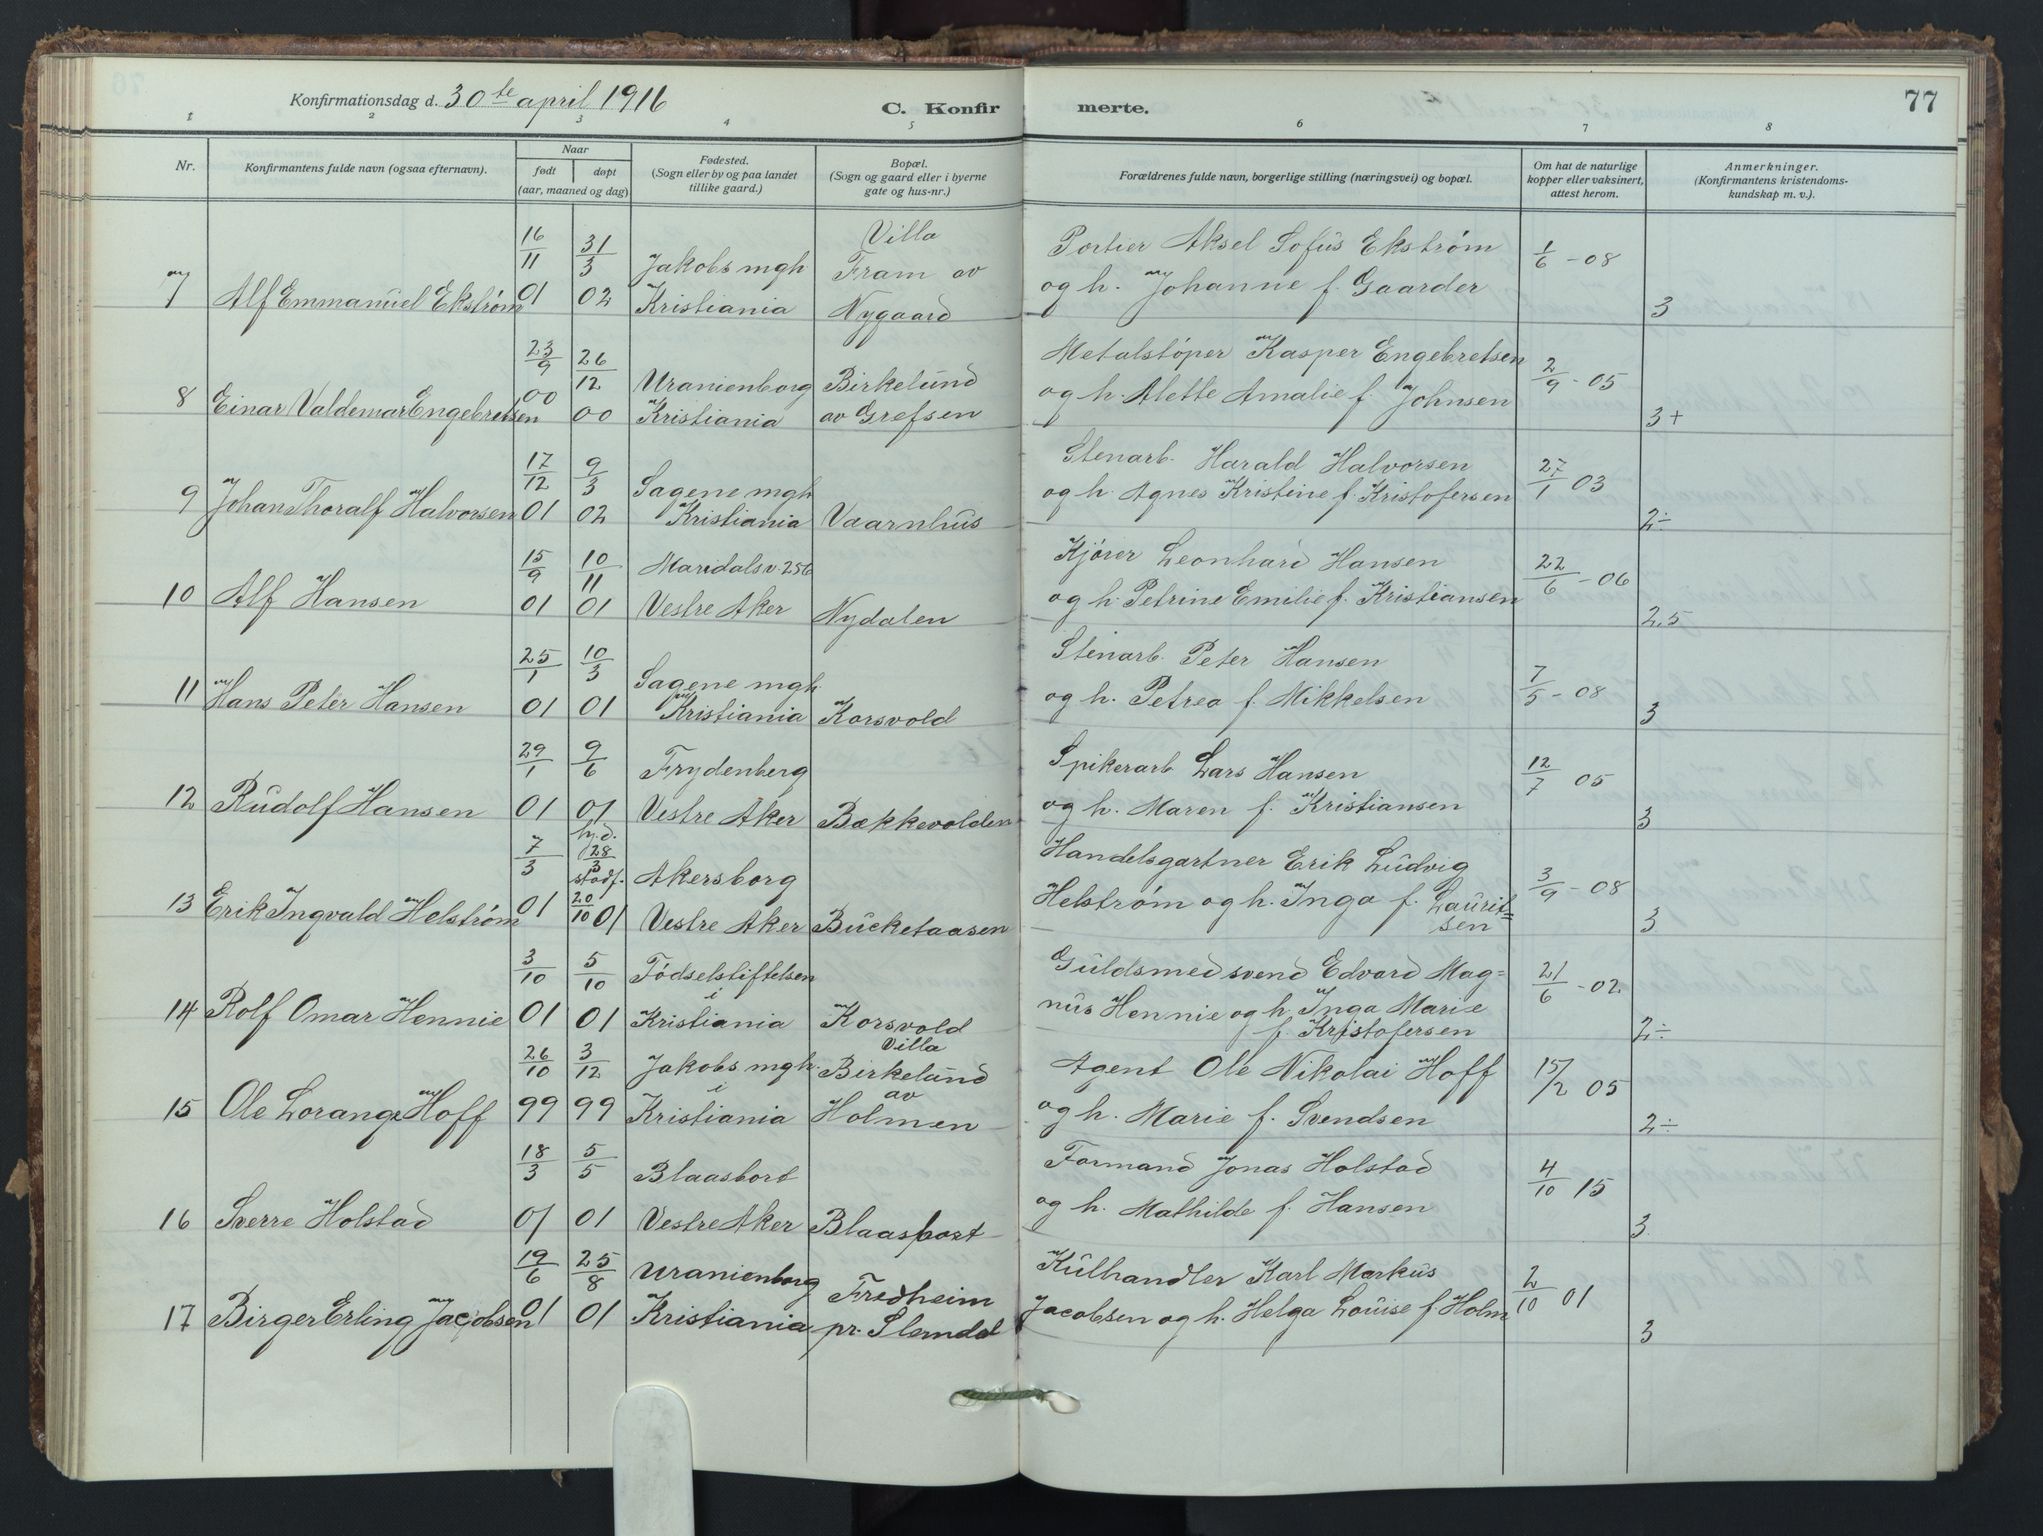 Konfirmationsdag d. 30te april 1916
C. Konfirmerte.
77
1 2 3 4 5 6 7 8
Nr.
Konfirmantens fulde navn (ogsaa efternavn).
Naar
født døpt
(aar, maaned og dag)
Fødested.
(Sogn eller by og paa landet
tillike gaard.)
Bopæl.
(Sogn og gaard eller i byerne
gate og hus-nr.)
Forældrenes fulde navn, borgerlige stilling (næringsvei) og bopæl.
Om hat de naturlige
kopper eller vaksinert,
attest herom.
Anmerkninger.
(Konfirmantens kristendoms-
kundskap m. v.).
7 Alf Emmanuel Ekstrøm
16/11 01
31/3 02
Jakobs mgh
Kristiania
Villa
Fram av
Nygaard
Portier Aksel Sofus Ekstrøm
og h. Johanne f. Gaarder
1/6 - 08
3
8 Einar Valdemar Engebretsen
23/9 00
26/12 00
Uranienborg
Kristiania
Birkelund
av Grefsen
Metalstøper Kasper Engebretsen
og h. Alette Amalie f. Johnsen
2/9 - 05
3+
9 Johan Thoralf Halvorsen
17/12 01
9/3 02
Sagene mgh
Kristiania
Vaarnhus
Stenarb. Harald Halvorsen
og h. Agnes Kristine f. Kristofersen
27/1 03
2÷
10 Alf Hansen
15/9 01
10/11 01
Maridalsv. 256
Vestre Aker
Nydalen
Kjører Leonhard Hansen
og h. Petrine Emilie f. Kristiansen
22/6 - 06
2,5
11 Hans Peter Hansen
25/1 01
10/3 01
Sagene mgh.
Kristiania
Korsvold
Stenarb. Peter Hansen
og h. Petrea f. Mikkelsen
7/5 - 08
3
12 Rudolf Hansen
29/1 01
9/6 01
Frydenberg
Vestre Aker
Bækkevolden
Spikerarb. Lars Hansen
og h. Maren f. Kristiansen
12/7 05
3
13 Erik Ingvald Helstrøm
7/3 01
hj.d.
28/3
stadf.
20/10 01
Akersborg
Vestre Aker
Bucketaasen
Handelsgartner Erik Ludvig
Helstrøm og h. Inga f. Laurit=
sen
3/9 - 08
3
14 Rolf Omar Hennie
3/10 01
5/10 01
Fødselstiftelsen
i
Kristiania
Korsvold
Guldsmedsvend Edvard Mag=
nus Hennie og h. Inga Marie
f. Kristofersen
21/6 - 02
2÷
15 Ole Lorange Hoff
26/10 99
3/12 99
Jakobs mgh.
i
Kristiania
Villa
Birkelund
av
Holmen
Agent Ole Nikolai Hoff
og h. Marie f. Svendsen
15/2 05
2÷
16 Sverre Holstad
18/3 01
5/5 01
Blaasbort
Vestre Aker
Blaasbort
Formand Jonas Holstad
og h. Mathilde f. Hansen
4/10 15
3
17 Birger Erling Jacobsen
19/6 01
25/8 01
Uranienborg
Kristiania
Fredheim
pr. Slemdal
Kulhandler Karl Markus
Jacobsen og h. Helga Louise f. Holm
2/10 01
3